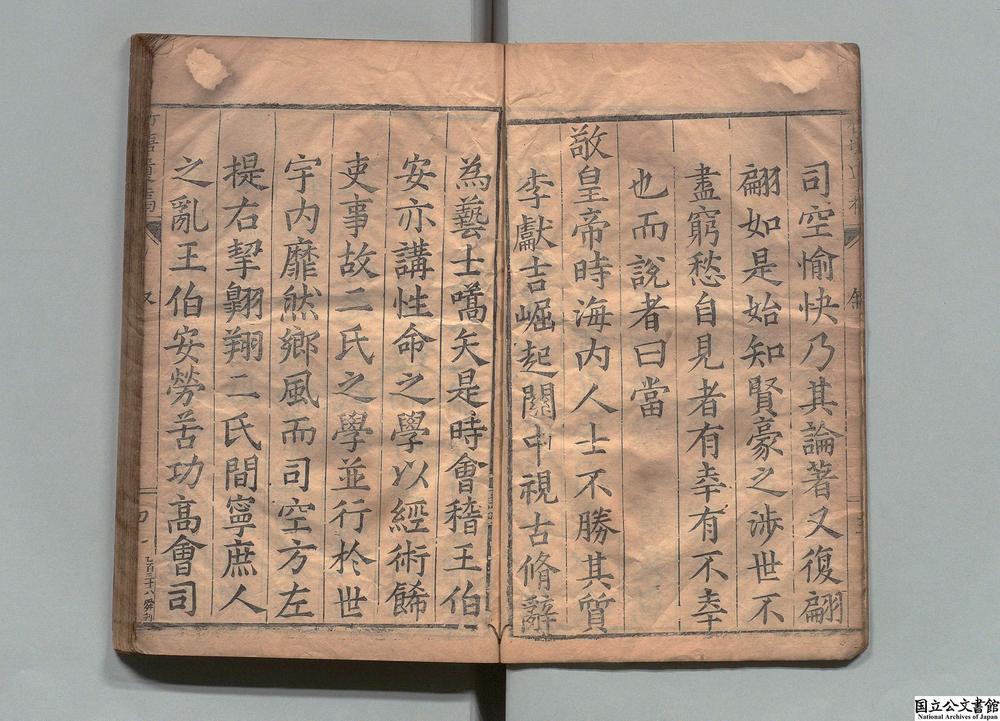 司空愉快乃其論著又復翩
翩如是始知賢豪之涉世不
盡窮愁自見者有幸有不幸
也而說者曰當
敬皇帝時海内人士不勝其質
李獻吉崛起關中視古脩辭
為藝士嚆矢是時會稽王伯
安亦講性命之學以經術餙
吏事故二氏之學並行於世
宇内靡然鄉風而司空方左
提右挈翺翔二氏間寧庶人
之亂王伯安勞苦功高會司
国立公文書館
National Archives of Japan